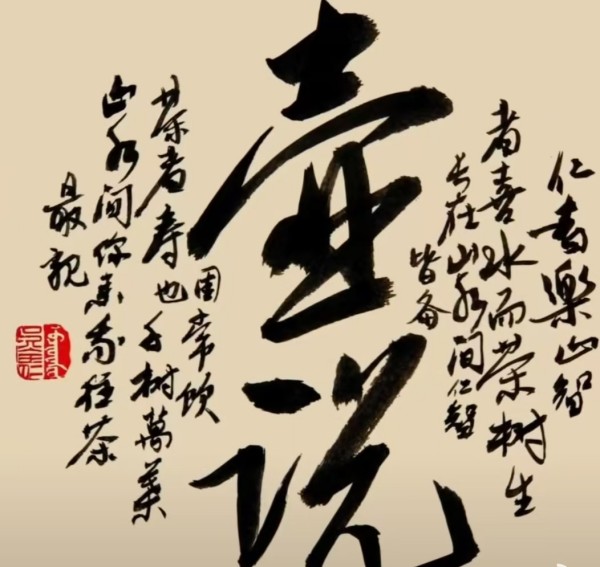 仁者樂山智
者喜水而茶树生
长在山水间仁智
皆备
壶说
固常饮
茶者寿也千树萬葉
山水间你种茶
最靓